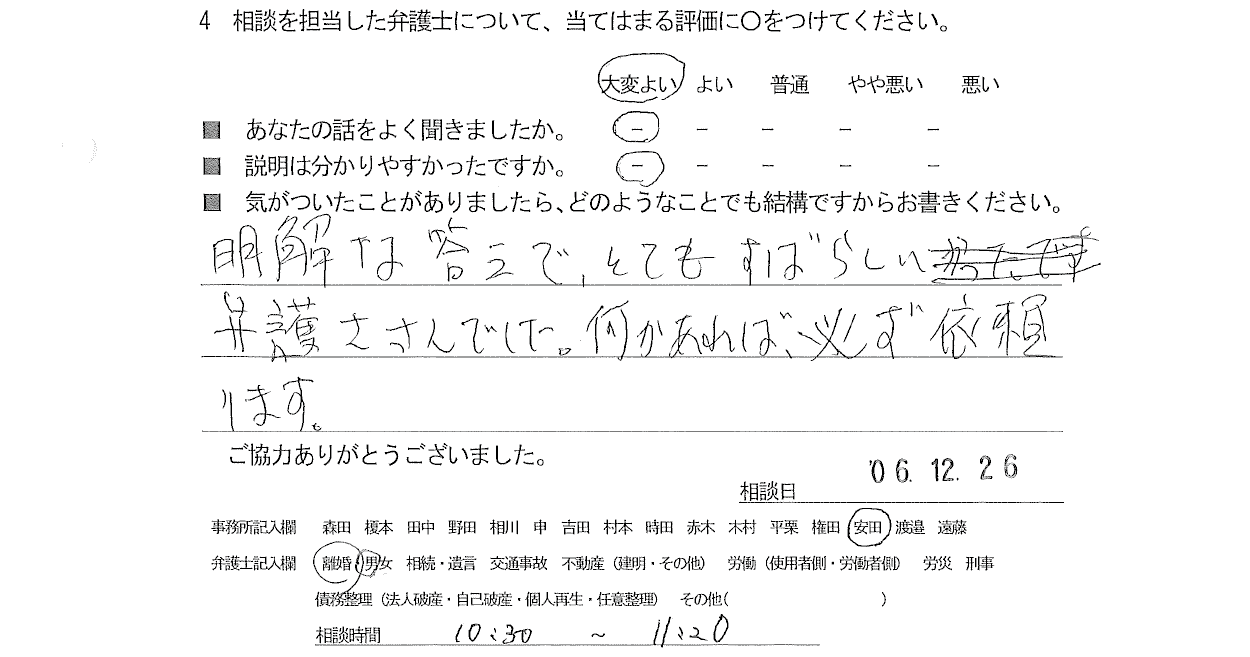 4 相談を担当した弁護士について、当てはまる評価に〇をつけてください。
大変よい よい 普通 やや悪い 悪い
■ あなたの話をよく聞きましたか。 － － － － －
■ 説明は分かりやすかったですか。 － － － － －
■ 気がついたことがありましたら、どのようなことでも結構ですからお書きください。
明解な答えで、とてもすばらしい
弁護士さんでした。何かあれば、必ず依頼
ります。
ご協力ありがとうございました。
相談日 '06.12.26
事務所記入欄 森田 榎本 田中 野田 相川 申 吉田 村本 時田 赤木 木村 平栗 権田 安田 渡邉 遠藤
弁護士記入欄 離婚・男女 相続・遺言 交通事故 不動産（建明・その他） 労働（使用者側・労働者側） 労災 刑事
債務整理（法人破産・自己破産・個人再生・任意整理） その他（ ）
相談時間 10:30 ～ 11:20